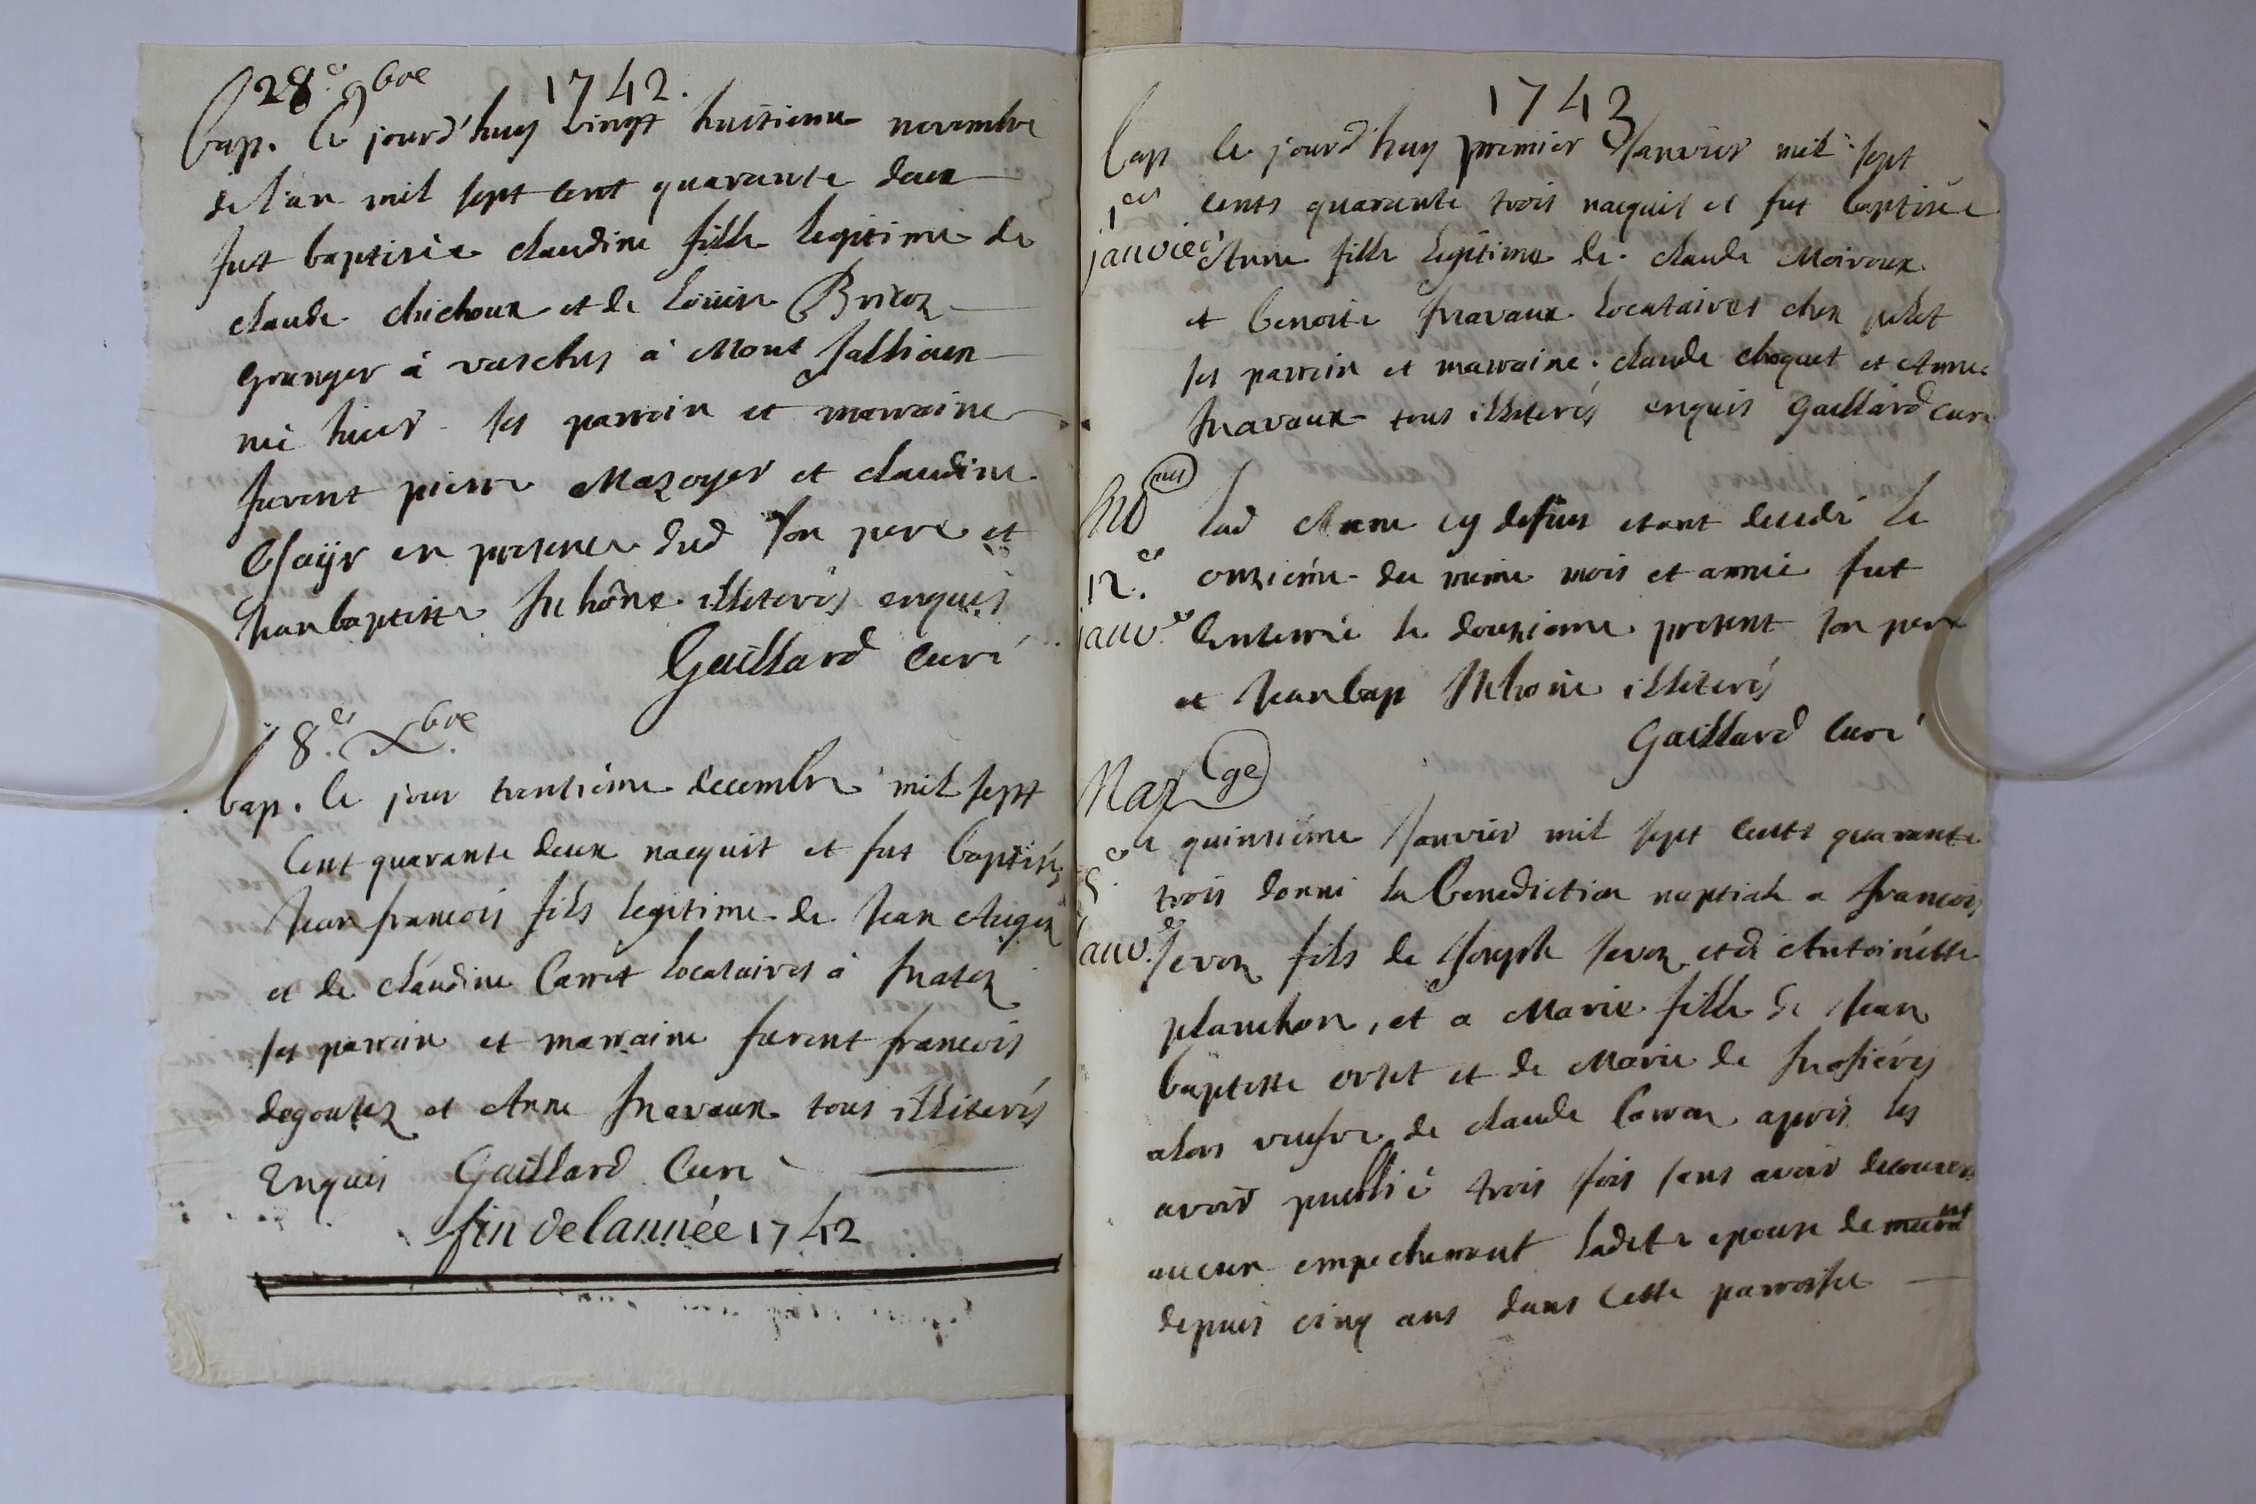 28.e 9bre 1742.
bap. Ce jourd'huy vingt huitieme novembre
de l'an mil sept cent quarante deux
fut baptisée claudine fille legitime de
claude chichoux et de Louise Bricoz
granger à à Mont
née hier. ses parrain et marraine
furent pierre Mazoyer et claudine
en presence dud son pere et
Jeanbaptiste illiterés enquis
Gaillard curé
8.e Xbre
bap. le jour trentieme decembre mil sept
cent quarante deux nacquit et fut baptisé
Jean francois fils legitime de Jean
et de claudine Carret locataires à
ses parrain et marraine furent francois
degoutez et Anne travaux tous illiterés
Enquis Gaillard Curé
fin de lannée 1742
1743
bap le jourd'huy premier Janvier mil sept
1er cents quarante trois nacquit et fut baptisée
janvier Anne fille legitime de claude Moiroux
et benoite travaux locataires chez pelet
ses parrain et marraine claude choquet et Anne
travaux tous illiterés enquis Gaillard curé
lad Anne cy dessus etant decedé le
12.e onzieme du meme mois et année fut
janv.er enterrée le douzieme present son pere
et Jeanbap illiterés
Gaillard Curé
Marge
le quinzieme Janvier mil sept cents quarante
trois donné la benediction nuptiale a francois
janv.er sevoz fils de Joseph sevoz et de Antoinette
planchon, et a Marie fille de Jean
baptiste orset et de Marie de
alors veufve de claude Carron apres les
avoir publié trois fois sans avoir decouvert
aucun empechement ladite epouse demeurant
depuis cinq ans dans cette parroisse